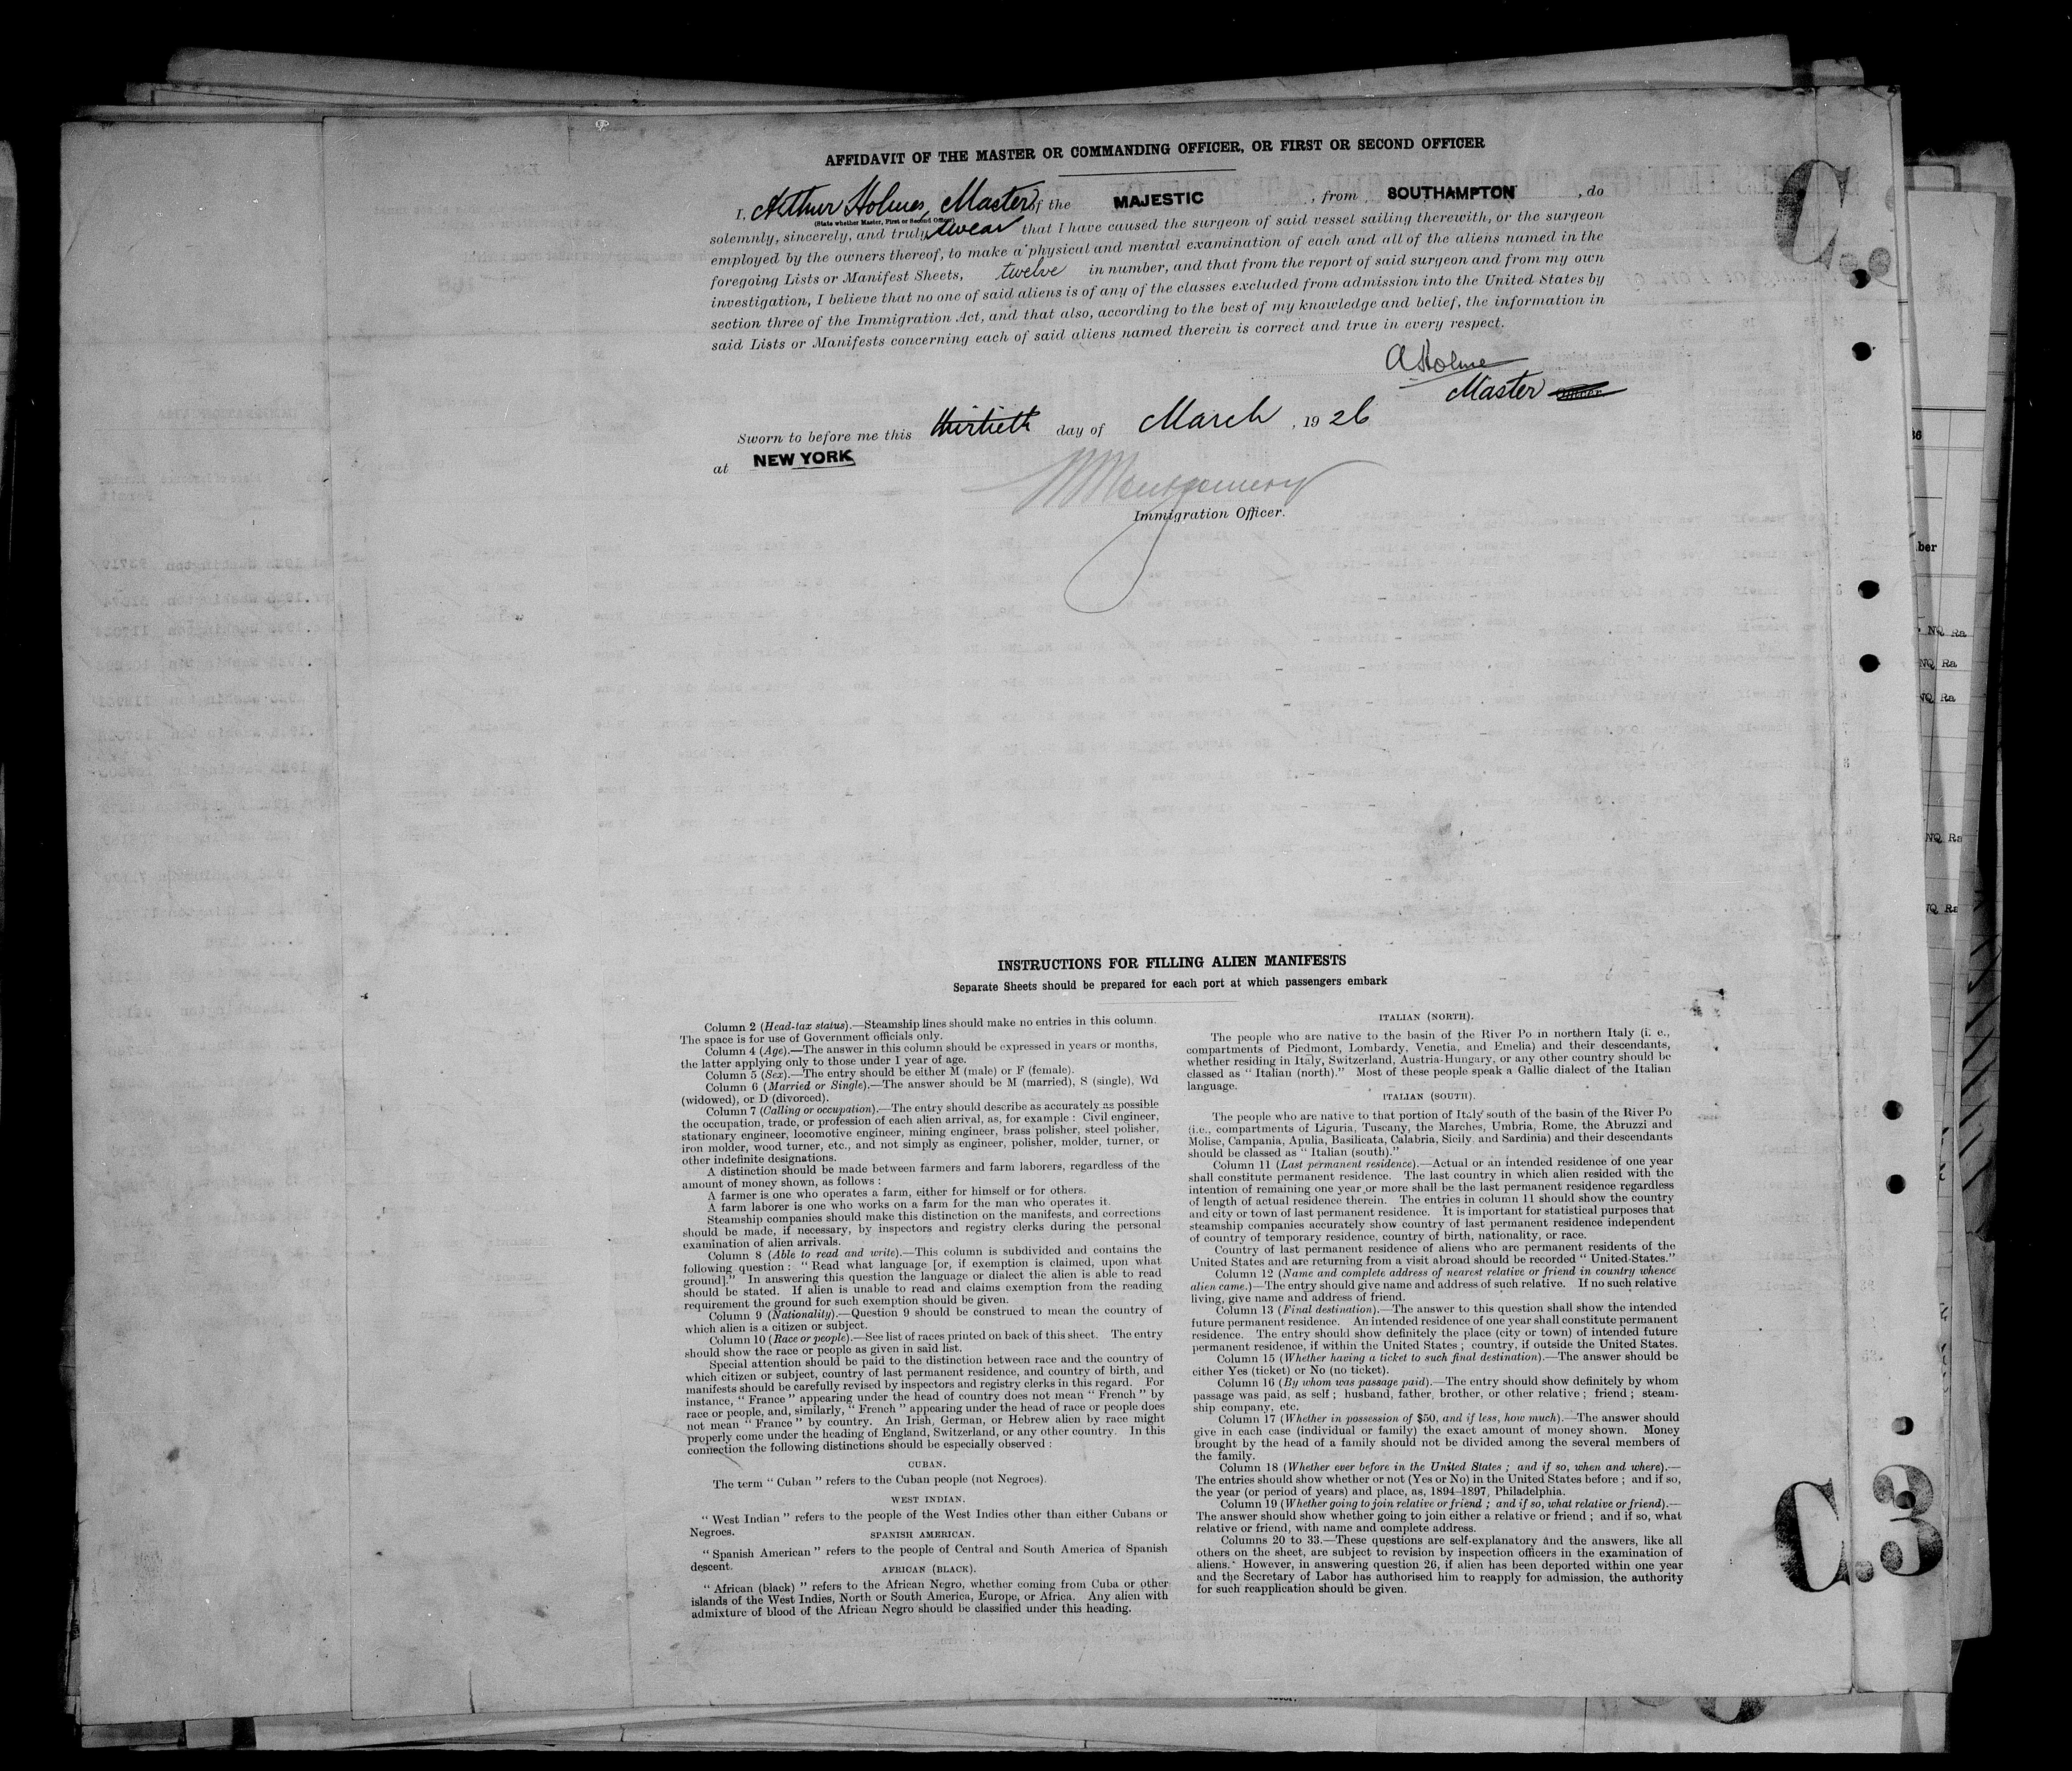 AFFIDAVIT OF THE MASTER OR COMMANDING OFFICER, OR FIRST OR SECOND OFFICER
I, Arthur Holmes, Master of the MAJESTIC, from SOUTHAMPTON, do
(State whether Master, First or Second Officer)
solemnly, sincerely, and truly swear that I have caused the surgeon of said vessel sailing therewith, or the surgeon
employed by the owners thereof, to make a physical and mental examination of each and all of the aliens named in the
foregoing Lists or Manifest Sheets, twelve in number, and that from the report of said surgeon and from my own
investigation, I believe that no one of said aliens is of any of the classes excluded from admission into the United States by
section three of the Immigration Act, and that also, according to the best of my knowledge and belief, the information in
said Lists or Manifests concerning each of said aliens named therein is correct and true in every respect.
A Holme
Master Officer.
Sworn to before me this thirtieth day of March, 1926
at NEW YORK
Montgomery
Immigration Officer.
INSTRUCTIONS FOR FILLING ALIEN MANIFESTS
Separate Sheets should be prepared for each port at which passengers embark
Column 2 (Head-tax status).—Steamship lines should make no entries in this column.
The space is for use of Government officials only.
Column 4 (Age).—The answer in this column should be expressed in years or months,
the latter applying only to those under 1 year of age.
Column 5 (Sex).—The entry should be either M (male) or F (female).
Column 6 (Married or Single).—The answer should be M (married), S (single), Wd
(widowed), or D (divorced).
Column 7 (Calling or occupation).—The entry should describe as accurately as possible
the occupation, trade, or profession of each alien arrival, as, for example : Civil engineer,
stationary engineer, locomotive engineer, mining engineer, brass polisher, steel polisher,
iron molder, wood turner, etc., and not simply as engineer, polisher, molder, turner, or
other indefinite designations.
A distinction should be made between farmers and farm laborers, regardless of the
amount of money shown, as follows :
A farmer is one who operates a farm, either for himself or for others.
A farm laborer is one who works on a farm for the man who operates it.
Steamship companies should make this distinction on the manifests, and corrections
should be made, if necessary, by inspectors and registry clerks during the personal
examination of alien arrivals.
Column 8 (Able to read and write).—This column is subdivided and contains the
following question : " Read what language [or, if exemption is claimed, upon what
ground]." In answering this question the language or dialect the alien is able to read
should be stated. If alien is unable to read and claims exemption from the reading
requirement the ground for such exemption should be given.
Column 9 (Nationality).—Question 9 should be construed to mean the country of
which alien is a citizen or subject.
Column 10 (Race or people).—See list of races printed on back of this sheet. The entry
should show the race or people as given in said list.
Special attention should be paid to the distinction between race and the country of
which citizen or subject, country of last permanent residence, and country of birth, and
manifests should be carefully revised by inspectors and registry clerks in this regard. For
instance, " France " appearing under the head of country does not mean " French " by
race or people, and, similarly, " French " appearing under the head of race or people does
not mean " France " by country. An Irish, German, or Hebrew alien by race might
properly come under the heading of England, Switzerland, or any other country. In this
connection the following distinctions should be especially observed :
CUBAN.
The term " Cuban " refers to the Cuban people (not Negroes).
WEST INDIAN.
" West Indian " refers to the people of the West Indies other than either Cubans or
Negroes.
SPANISH AMERICAN.
" Spanish American " refers to the people of Central and South America of Spanish
descent.
AFRICAN (BLACK).
" African (black) " refers to the African Negro, whether coming from Cuba or other
islands of the West Indies, North or South America, Europe, or Africa. Any alien with
admixture of blood of the African Negro should be classified under this heading.
ITALIAN (NORTH).
The people who are native to the basin of the River Po in northern Italy (i. e.,
compartments of Piedmont, Lombardy, Venetia, and Emelia) and their descendants,
whether residing in Italy, Switzerland, Austria-Hungary, or any other country should be
classed as " Italian (north)." Most of these people speak a Gallic dialect of the Italian
language.
ITALIAN (SOUTH).
The people who are native to that portion of Italy south of the basin of the River Po
(i.e., compartments of Liguria, Tuscany, the Marches, Umbria, Rome, the Abruzzi and
Molise, Campania, Apulia, Basilicata, Calabria, Sicily, and Sardinia) and their descendants
should be classed as " Italian (south)."
Column 11 (Last permanent residence).—Actual or an intended residence of one year
shall constitute permanent residence. The last country in which alien resided with the
intention of remaining one year or more shall be the last permanent residence regardless
of length of actual residence therein. The entries in column 11 should show the country
and city or town of last permanent residence. It is important for statistical purposes that
steamship companies accurately show country of last permanent residence independent
of country of temporary residence, country of birth, nationality, or race.
Country of last permanent residence of aliens who are permanent residents of the
United States and are returning from a visit abroad should be recorded " United-States."
Column 12 (Name and complete address of nearest relative or friend in country whence
alien came.)—The entry should give name and address of such relative. If no such relative
living, give name and address of friend.
Column 13 (Final destination).—The answer to this question shall show the intended
future permanent residence. An intended residence of one year shall constitute permanent
residence. The entry should show definitely the place (city or town) of intended future
permanent residence, if within the United States ; country, if outside the United States.
Column 15 (Whether having a ticket to such final destination).—The answer should be
either Yes (ticket) or No (no ticket).
Column 16 (By whom was passage paid).—The entry should show definitely by whom
passage was paid, as self ; husband, father, brother, or other relative ; friend ; steam-
ship company, etc.
Column 17 (Whether in possession of $50, and if less, how much).—The answer should
give in each case (individual or family) the exact amount of money shown. Money
brought by the head of a family should not be divided among the several members of
the family.
Column 18 (Whether ever before in the United States ; and if so, when and where).—
The entries should show whether or not (Yes or No) in the United States before ; and if so,
the year (or period of years) and place, as, 1894–1897, Philadelphia.
Column 19 (Whether going to join relative or friend ; and if so, what relative or friend).—
The answer should show whether going to join either a relative or friend ; and if so, what
relative or friend, with name and complete address.
Columns 20 to 33.—These questions are self-explanatory and the answers, like all
others on the sheet, are subject to revision by inspection officers in the examination of
aliens. However, in answering question 26, if alien has been deported within one year
and the Secretary of Labor has authorised him to reapply for admission, the authority
for such reapplication should be given.
C.3
NQ Ra
NQ Ra
NQ Ra
NQ Ra
NQ Ra